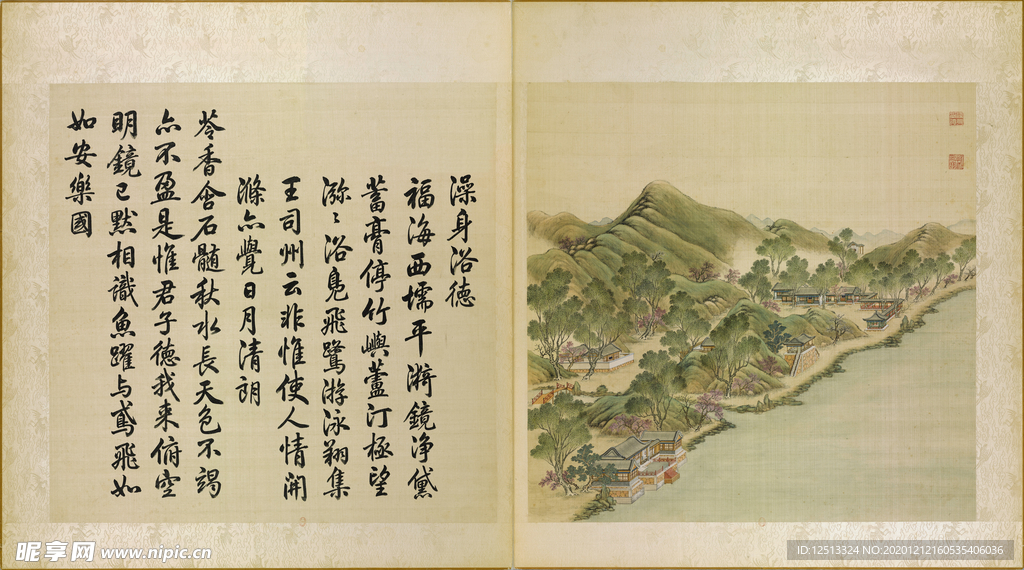 澡身浴德
福海西壖平漪鏡净黛
蓄膏停竹嶼蘆汀極望
瀰〻浴鳧飛鷺游泳翔集
王司州云非惟使人情開
滌亦覺日月清朗
苓香含石髓秋水長天色不竭
亦不盈是惟君子德我来俯空
明鏡已默相識魚躍与鳶飛如
如安樂國
昵享网 www.nipic.cn
ID:12513324 NO:20201212160535406036